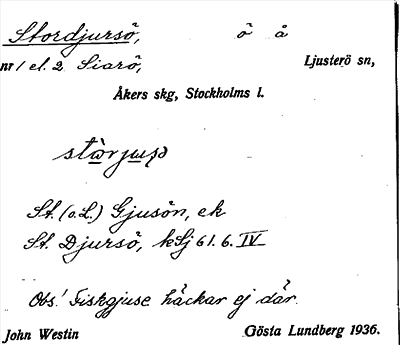 Stordjursö, ö å
nr 1 el. 2 Siarö, Ljusterö sn,
Åkers skg, Stockholms l.
St. (o. L.) Gjusön, ek
St. Djursö, kSj 61.6. IV
Obs! Fiskgjuse häckar ej där.
John Westin Gösta Lundberg 1936.